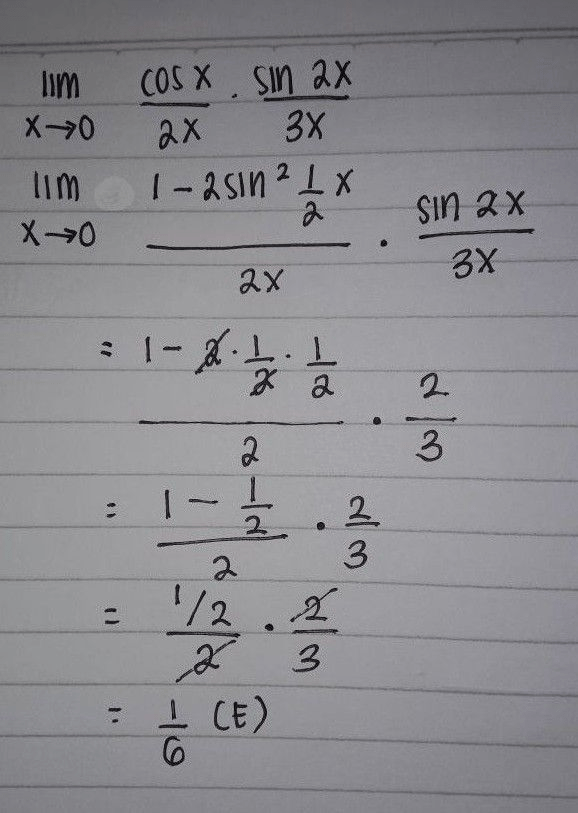 lim x→0 cos x / 2x . sin 2x / 3x
lim x→0 1 - 2 sin² 1/2 x / 2x . sin 2x / 3x
= 1 - 2 . 1/2 . 1/2 / 2 . 2/3
= 1 - 1/2 / 2 . 2/3
= 1/2 / 2 . 2/3
= 1/6 (E)